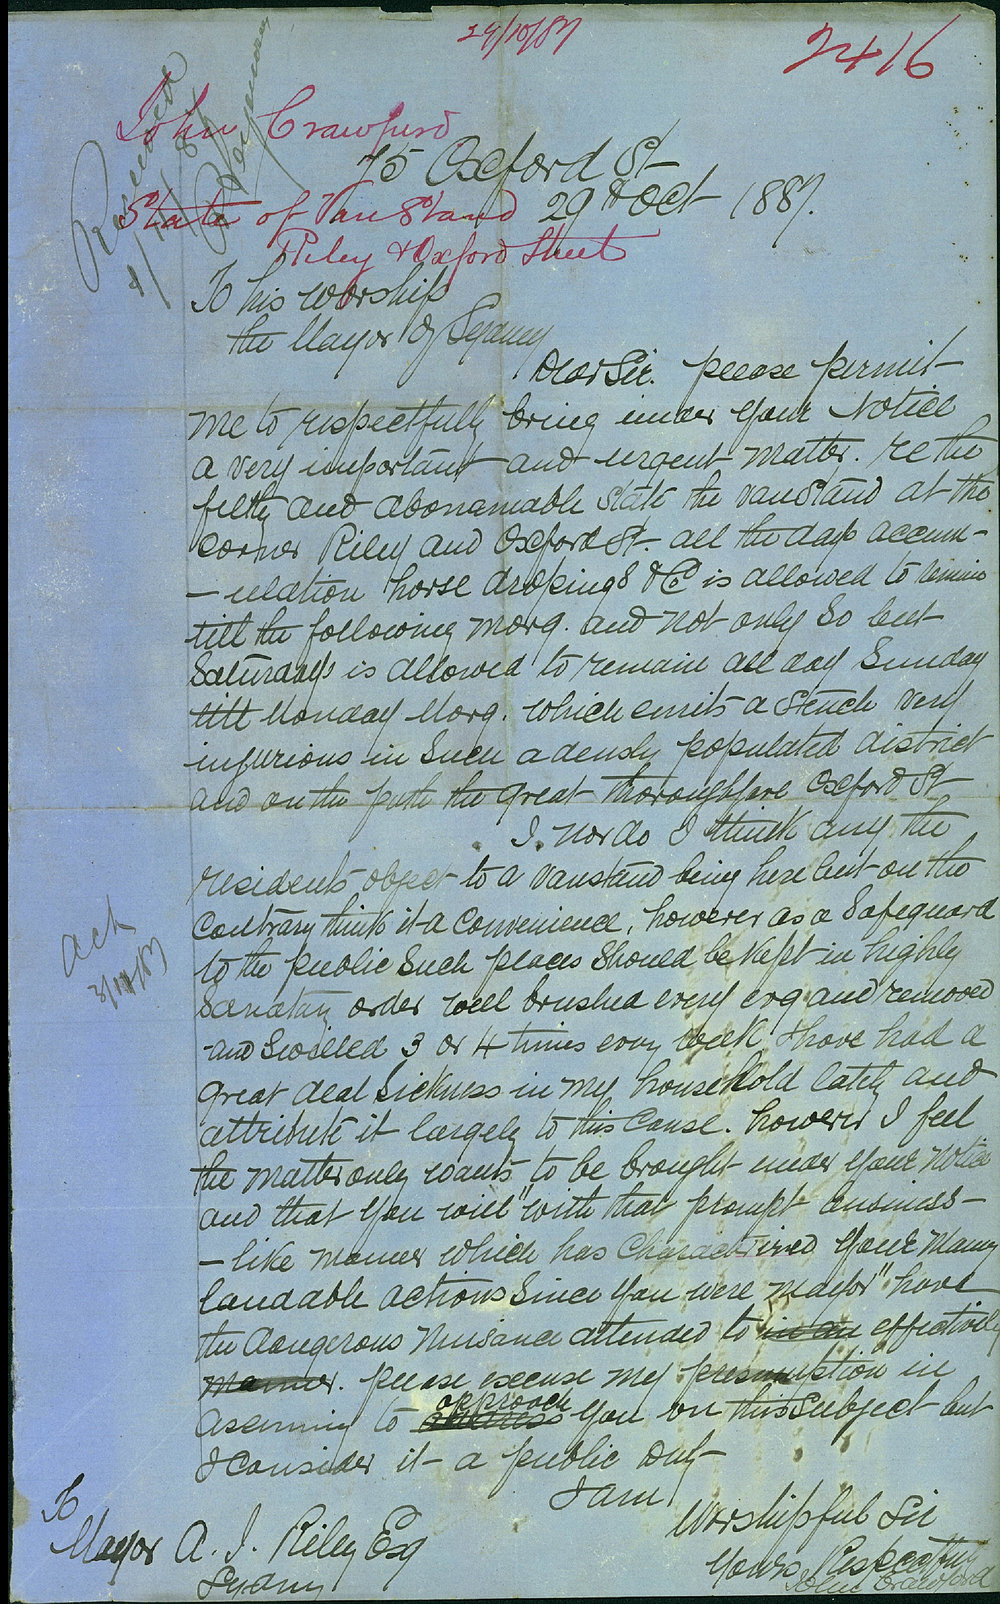 29/10/87
2416
Received
John Crawford
75 Oxford St
State of Van Stand 29th Oct 1887.
Riley & Oxford Street
To his worship
the Mayor of Sydney
Dear Sir. please permit
me to respectfully bring under your Notice
a very important and urgent matter. re the
filthy and abonamable state the vanstand at the
corner Riley and Oxford St. all the days accum-
-ulation horse dropings &c is allowed to remain
till the following morg. and not only so but
Saturdays is allowed to remain all day Sunday
till Monday Morg. which emits a stench very
injurious in such a densly populated district
and on the path the great thoroughfare Oxford St
I. nor do I think any the
residents object to a vanstand being here but on the
contrary think it a convenience, however as a safeguard
to the public such places should be kept in highly
sanatary order well brushed every evg and removed
and swilled 3 or 4 times every week I have had a
great deal sickness in my household lately and
attribute it largely to this cause. however I feel
the matter only wants to be brought under your notice
and that you will "with that prompt business-
-like manner which has charactirized your many
laudable actions since you were mayor" have
the dangerous nuisance attended to in an effectively
manner. please excuse my presumption in
assuming to address approach you on this subject but
I consider it a public duty
I am
Worshipful Sir
Yours Respectfully
John Crawford
To
Mayor A. J. Riley Esq
Sydney
ack
3/11/87